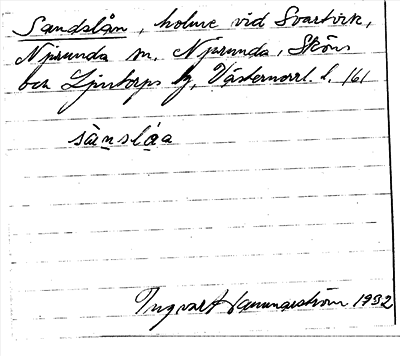 Sandslån, holme vid Svartvik,
Njurunda sn. Njurunda, Sköns
och Ljustorps tg, Västernorrl. l. 161
sànslá̱a
Ingvart Hammarström 1932